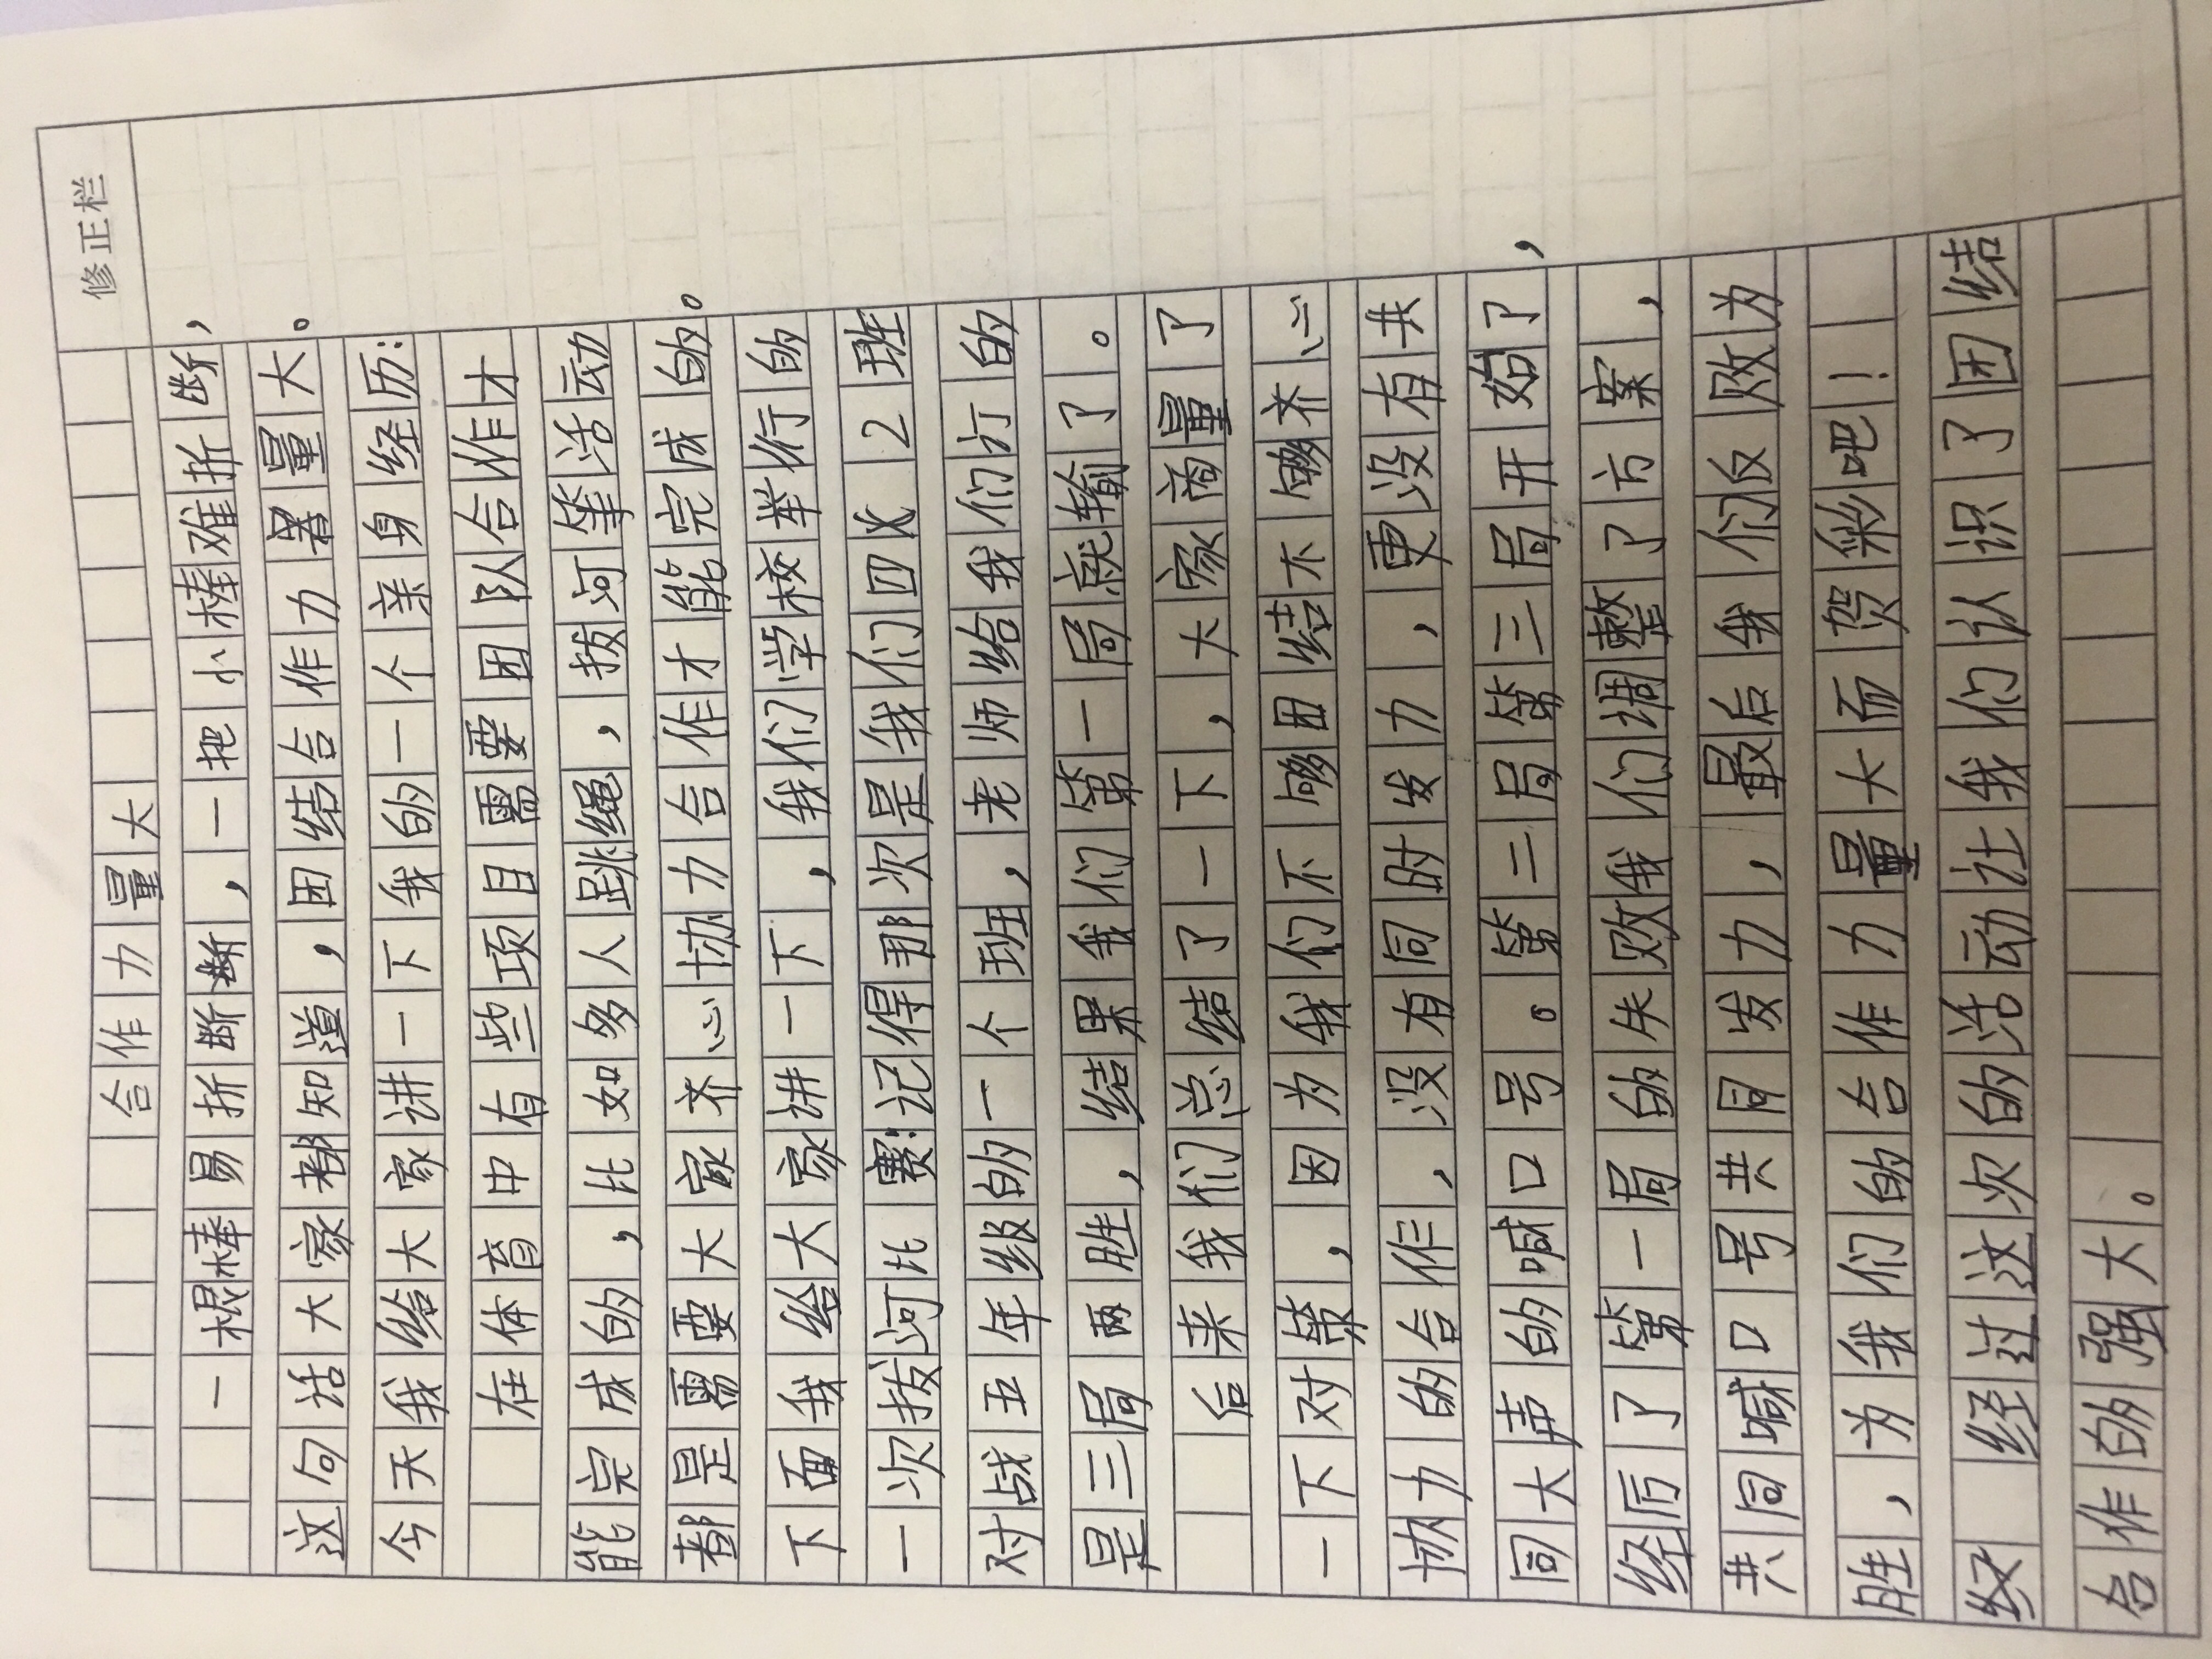 修正栏
合作力量大
一根棒易折断断，一把小棒难折断，
这句话大家都知道，团结合作力量大。
今天我给大家讲一下我的一个亲身经历：
在体育中有些项目需要团队合作才
能完成的，比如多人跳绳，拔河等活动
都是需要大家齐心协力合作才能完成的。
下面我给大家讲一下，我们学校举行的
一次拔河比赛：记得那次是我们四 2班
对战五年级的一个班，老师给我们订的
是三局两胜，结果我们第一局就输了。
后来我们总结了一下，大家商量了
一下对策，因为我们不够团结不够齐心
协力的合作，没有同时发力，更没有共
同大声的喊口号。第二局第三局开始了，
经后了第一局的失败我们调整了方案，
共同喊口号共同发力，最后我们反败为
胜，为我们的合作力量大而贺彩吧！
经过这次的活动让我们认识了团结
合作的强大。